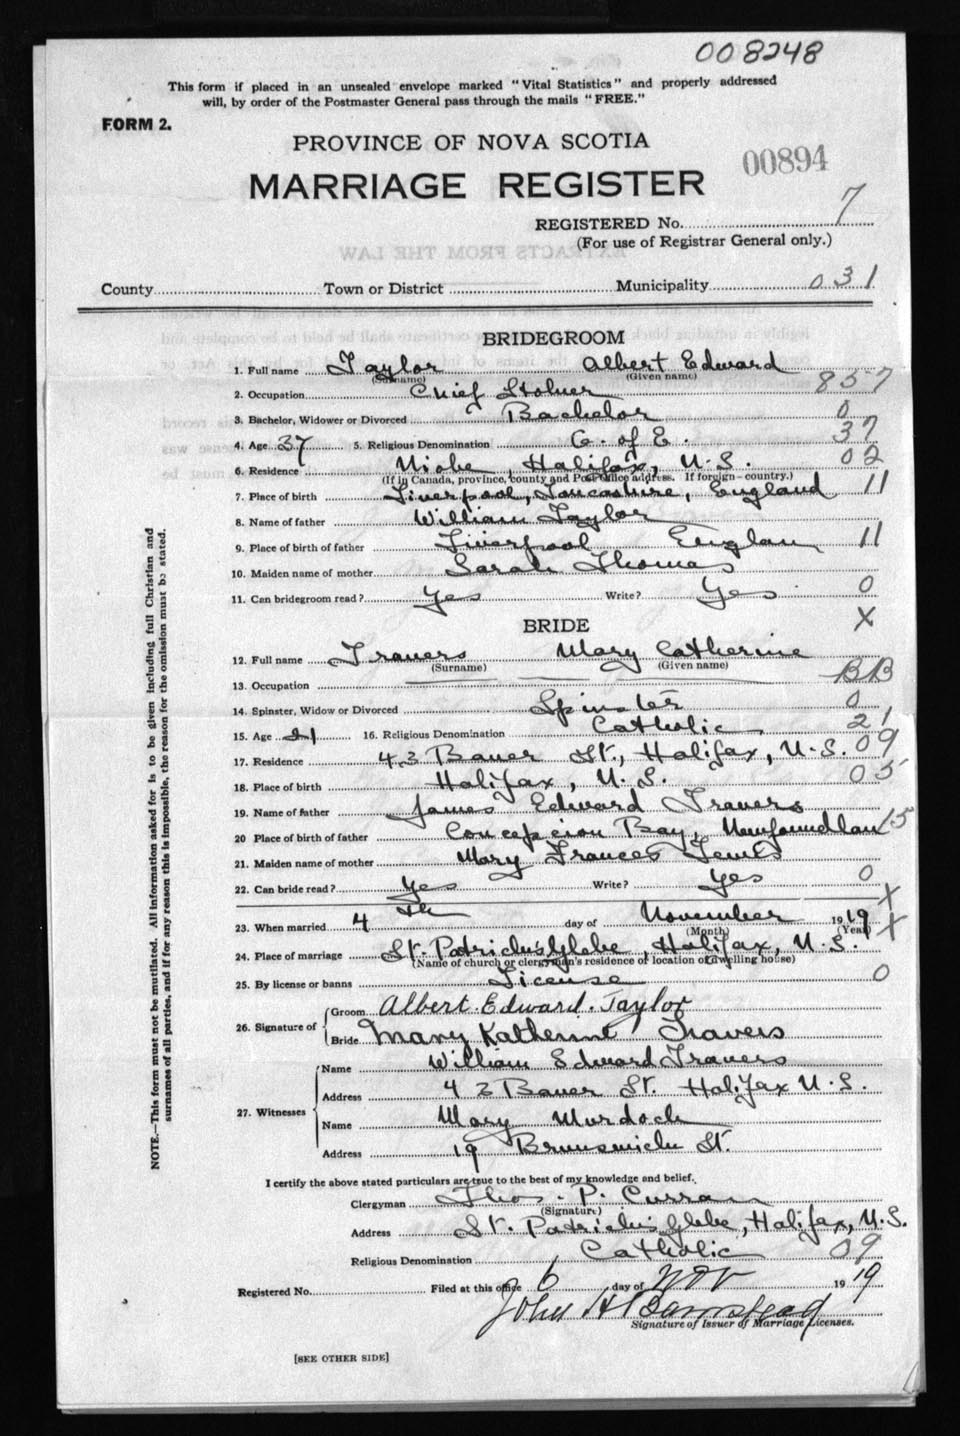 008248
This form if placed in an unsealed envelope marked "Vital Statistics" and properly addressed
will, by order of the Postmaster General pass through the mails "FREE."
FORM 2.
PROVINCE OF NOVA SCOTIA
00894
MARRIAGE REGISTER
REGISTERED No. 7
(For use of Registrar General only.)
County Town or District Municipality 031
BRIDEGROOM
1. Full name Taylor Albert Edward
(Surname) (Given name)
2. Occupation Chief Stoker 857
3. Bachelor, Widower or Divorced Bachelor 0
4. Age 37 5. Religious Denomination C. of E. 37
6. Residence Niobe, Halifax, N.S. 02
(If in Canada, province, county and Post office address. If foreign—country.)
7. Place of birth Liverpool, Lancashire, England 11
8. Name of father William Taylor
9. Place of birth of father Liverpool England 11
10. Maiden name of mother Sarah Thomas
11. Can bridegroom read? Yes Write? Yes 0
X
BRIDE
12. Full name Travers Mary Catherine
(Surname) (Given name)
13. Occupation BB
14. Spinster, Widow or Divorced Spinster 0
15. Age 21 16. Religious Denomination Catholic 21
17. Residence 43 Bauer St., Halifax, N.S. 09
18. Place of birth Halifax, N.S. 05
19. Name of father James Edward Travers
20 Place of birth of father Concepcion Bay, Newfoundlan 15
21. Maiden name of mother Mary Frances Lewis
22. Can bride read? Yes Write? Yes 0
X
23. When married 4th day of November 1919 X
(Month) (Year)
24. Place of marriage St. Patrick's Glebe, Halifax, N.S.
(Name of church or clergyman's residence of location of dwelling house)
25. By license or banns License 0
26. Signature of Groom Albert Edward. Taylor
Bride Mary Katherine Travers
27. Witnesses Name William Edward Travers
Address 43 Bauer St. Halifax N.S.
Name Mary Murdock
Address 19 Brunswick St.
I certify the above stated particulars are true to the best of my knowledge and belief.
Clergyman Thos. P. Curran
(Signature)
Address St. Patrick's Glebe, Halifax, N.S.
Religious Denomination Catholic 09
Registered No. Filed at this office 6 day of Nov 1919
John H Barnstead
Signature of Issuer of Marriage Licenses.
[SEE OTHER SIDE]
NOTE.—This form must not be mutilated. All information asked for is to be given including full Christian and
surnames of all parties, and if for any reason this is impossible, the reason for the omission must be stated.